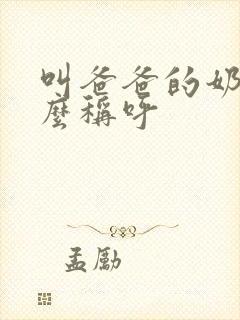 叫爸爸的奶
麽稱呼
孟勵